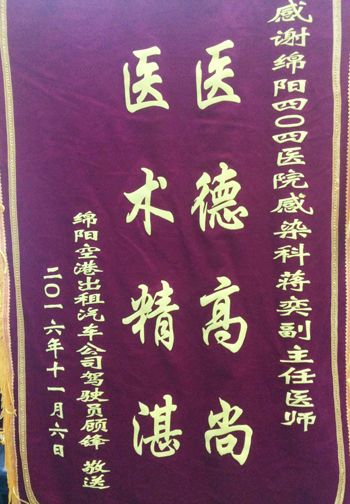 感谢绵阳四〇四医院感染科蒋奕副主任医师
医德高尚
医术精湛
绵阳空港出租汽车公司驾驶员顾锋 敬送
二〇一六年十一月六日